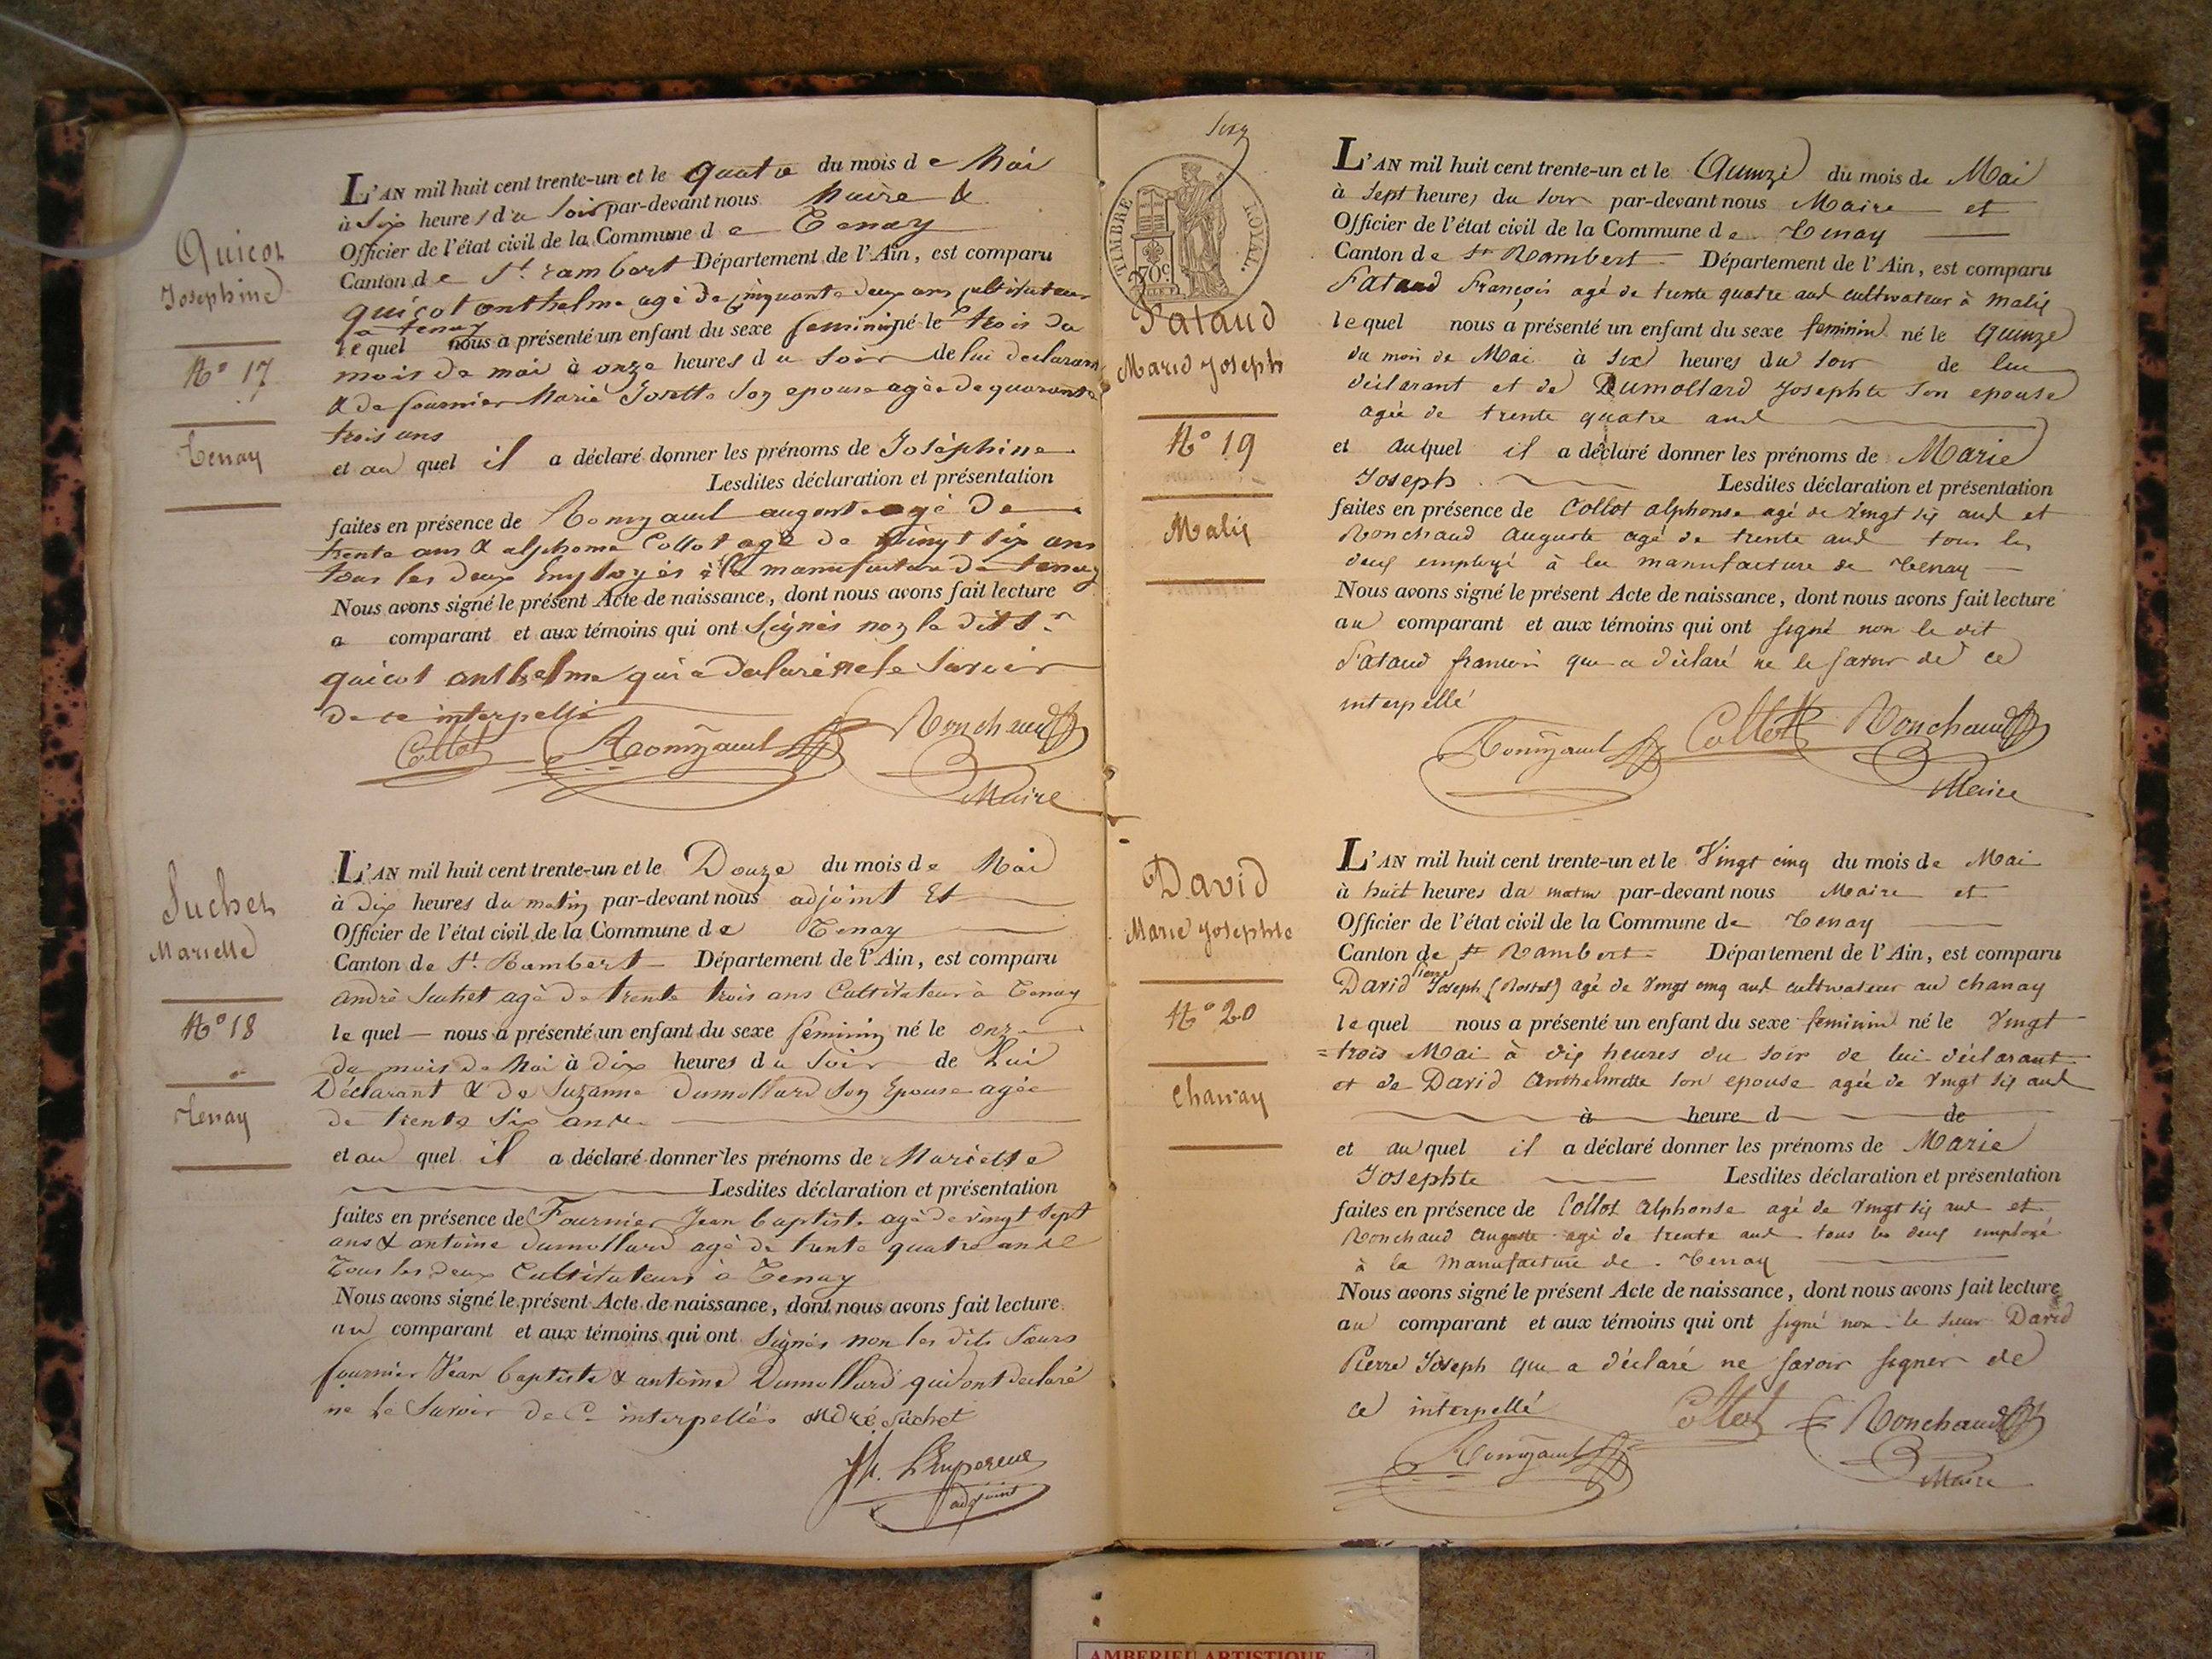 Quicot
Josephine
N° 17
Tenay
L'AN mil huit cent trente-un et le quatre du mois de Mai
à Six heures du Soir par-devant nous Maire &
Officier de l'état civil de la Commune de Tenay
Canton de St. rambert Département de l'Ain, est comparu
quicot anthelme agé de cinquante deux ans cultivateur
a tenay
lequel nous a présenté un enfant du sexe feminin né le trois du
mois de mai à onze heures du soir de lui declarant
& de fournier Marie Josette Son epouse agée de quarante
trois ans
et au quel il a déclaré donner les prénoms de Joséphine
Lesdites déclaration et présentation
faites en présence de auguste agé de
trente ans & alphonse Collot agé de vingt six ans
tous les deux Employés à la manufacture de tenay
Nous avons signé le présent Acte de naissance, dont nous avons fait lecture
a comparant et aux témoins qui ont Signés non le dit Sr
quicot anthelme qui a declaré ne le Savoir
de ce interpellé
Collot Ronchaud
Maire
Suchet
Mariette
N° 18
Tenay
L'AN mil huit cent trente-un et le Douze du mois de Mai
à Dix heures du matin par-devant nous adjoint Et
Officier de l'état civil de la Commune de Tenay
Canton de St. Rambert Département de l'Ain, est comparu
andré Suchet agé de trente trois ans Cultivateur à Tenay
le quel nous a présenté un enfant du sexe féminin né le onze
du mois de Mai à dix heures du Soir de Lui
Déclarant & de Suzanne Dumollard Son Epouse agée
de trente Six ans
et au quel il a déclaré donner les prénoms de Mariette
Lesdites déclaration et présentation
faites en présence de Fournier Jean baptiste agé de vingt Sept
ans & antoine Dumollard agé de trente quatre ans
Tous les deux Cultivateurs à Tenay
Nous avons signé le présent Acte de naissance, dont nous avons fait lecture
au comparant et aux témoins qui ont Signés non les dits Sieurs
fournier Jean baptiste & antoine Dumollard qui ont declaré
ne le Savoir de Ce interpellés andré Suchet
adjoint
TIMBRE ROYAL.
70c
Pataud
Marie Joseph
N° 19
Malix
L'AN mil huit cent trente-un et le Quinze du mois de Mai
à Sept heures du soir par-devant nous Maire et
Officier de l'état civil de la Commune de Tenay
Canton de St Rambert Département de l'Ain, est comparu
Pataud François agé de trente quatre ans cultivateur à Malix
lequel nous a présenté un enfant du sexe feminin né le Quinze
du mois de Mai à six heures du soir de lui
déclarant et de Dumollard Josephte son epouse
agée de trente quatre ans
et auquel il a déclaré donner les prénoms de Marie
Joseph Lesdites déclaration et présentation
faites en présence de Collot alphonse agé de vingt six ans et
Ronchaud Auguste agé de trente ans tous les
deux employé à la manufacture de Tenay
Nous avons signé le présent Acte de naissance, dont nous avons fait lecture
au comparant et aux témoins qui ont signé non le dit
Pataud francois que a déclaré ne le savoir de ce
interpellé
Collot Ronchaud
Maire
David
Marie Josephte
N° 20
Chanay
L'AN mil huit cent trente-un et le Vingt cinq du mois de Mai
à huit heures du matin par-devant nous Maire et
Officier de l'état civil de la Commune de Tenay
Canton de St Rambert Département de l'Ain, est comparu
David Pierre Joseph agé de Vingt cinq ans cultivateur au chanay
lequel nous a présenté un enfant du sexe feminin né le Vingt
= trois Mai à dix heures du soir de lui déclarant
et de David Anthelmette son epouse agée de Vingt six ans
à heure d de
et auquel il a déclaré donner les prénoms de Marie
Josephte Lesdites déclaration et présentation
faites en présence de Collot Alphonse agé de vingt six ans et
Ronchaud Auguste agé de trente ans tous les deux employé
à la Manufacture de Tenay
Nous avons signé le présent Acte de naissance, dont nous avons fait lecture
au comparant et aux témoins qui ont signé non le sieur David
Pierre Joseph que a déclaré ne savoir signer de
ce interpellé
Collot Ronchaud
Maire
AMBERIEU ARTISTIQUE